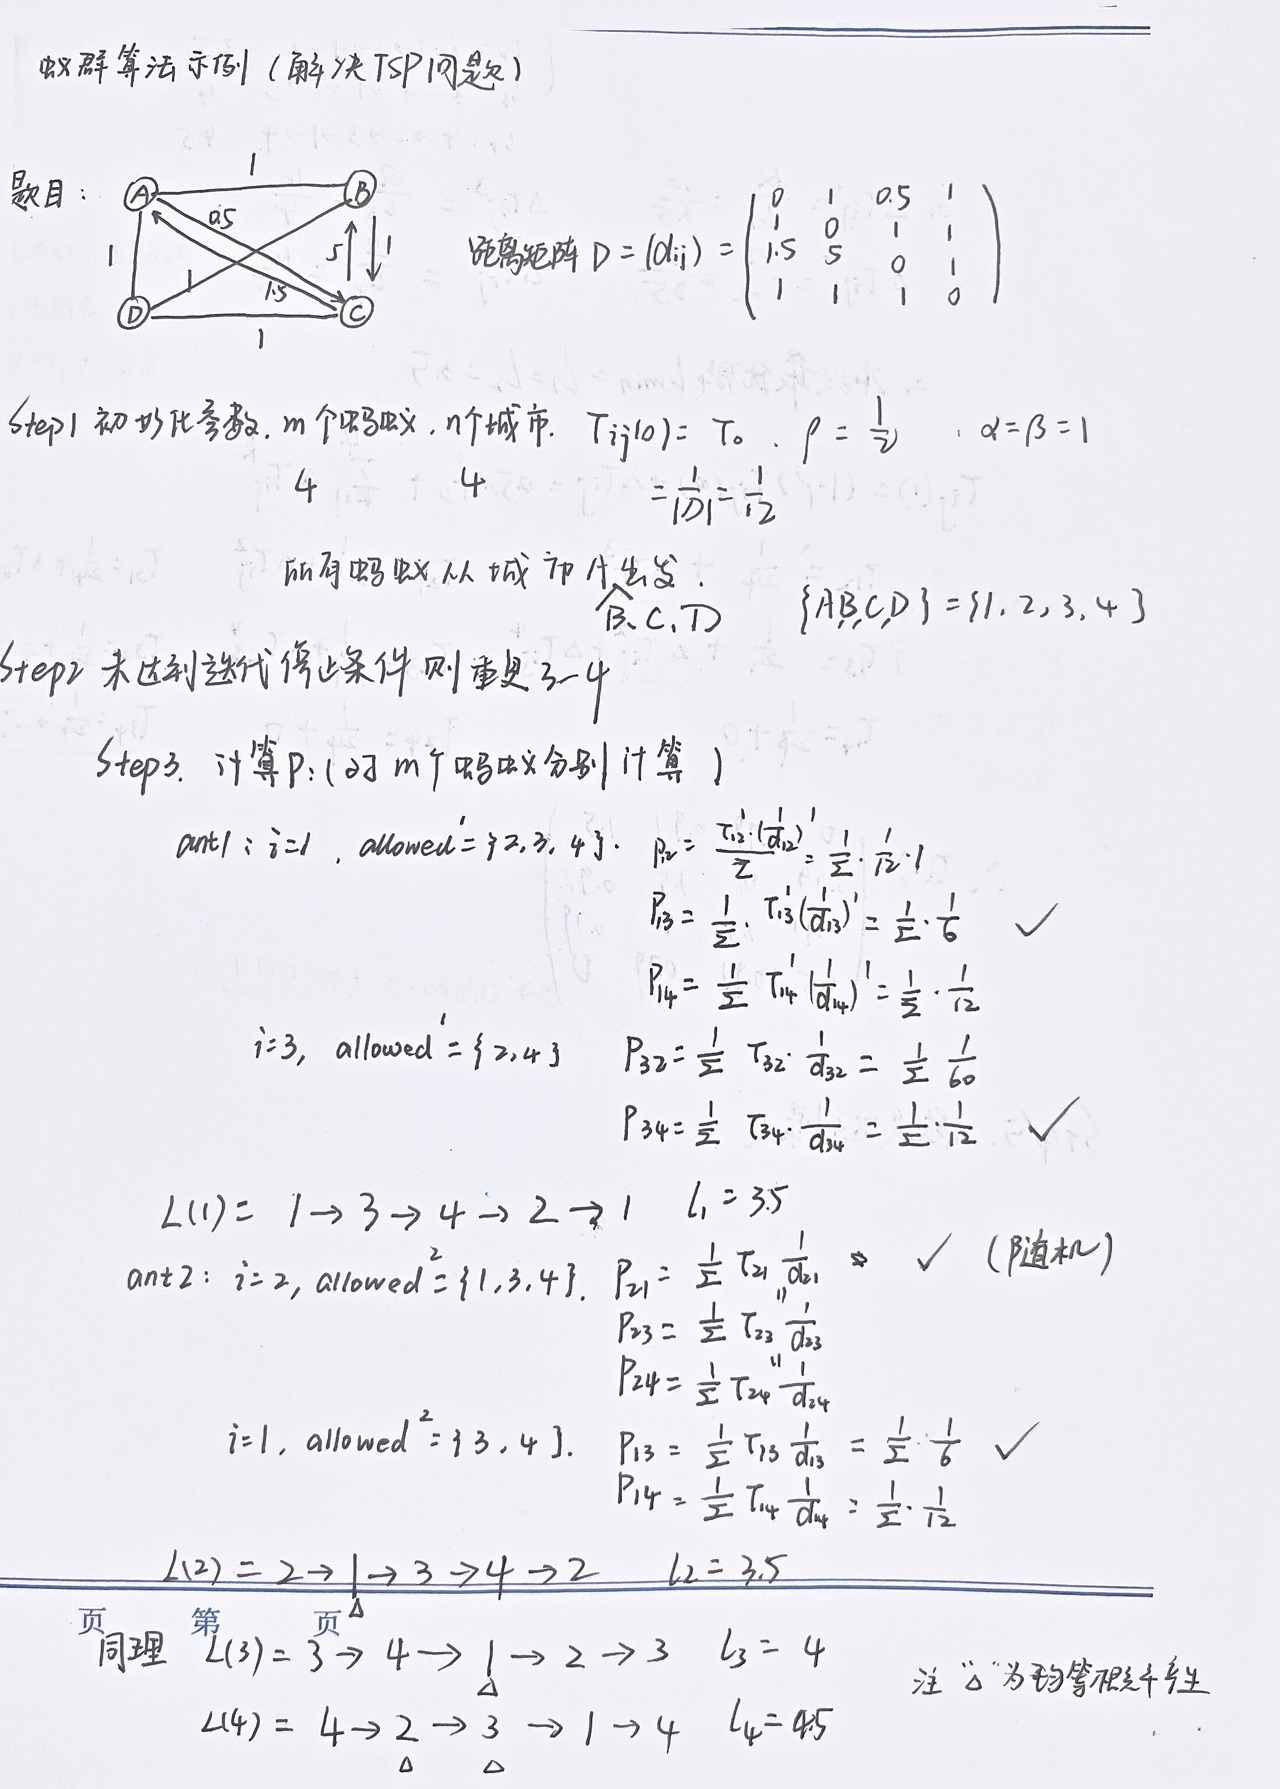 蚁群算法示例（解决TSP问题）
题目：
A 1 B
0.5
1 1 5 1
1.5
D 1 C
距离矩阵 D = (dij) = ( 0 1 0.5 1
1 0 1 1
1.5 5 0 1
1 1 1 0 )
Step1 初始化参数. m个蚂蚁. n个城市. τij(0) = τ0 . ρ = 1/2 . α=β=1
4 4 = 1/|D| = 1/12
所有蚂蚁从城市A出发.
B、C、D {A,B,C,D} = {1, 2, 3, 4}
Step2 未达到迭代停止条件则重复3-4
Step3. 计算P:(对m个蚂蚁分别计算)
ant1: i=1 , allowed¹ = {2, 3, 4}. P12 = τ12¹·(1/d12)¹/Σ = 1/Σ · 1/12 · 1
P13 = 1/Σ · τ13¹(1/d13)¹ = 1/Σ · 1/6 ✓
P14 = 1/Σ τ14¹(1/d14)¹ = 1/Σ · 1/12
i=3, allowed¹ = {2,4} P32 = 1/Σ τ32 · 1/d32 = 1/Σ 1/60
P34 = 1/Σ τ34 · 1/d34 = 1/Σ · 1/12 ✓
L(1) = 1→3→4→2→1 l1 = 3.5
ant2: i=2, allowed² = {1,3,4}. P21 = 1/Σ τ21 1/d21 ✓ (随机)
P23 = 1/Σ τ23 1/d23
P24 = 1/Σ τ24 1/d24
i=1, allowed² = {3, 4}. P13 = 1/Σ τ13 1/d13 = 1/Σ · 1/6 ✓
P14 = 1/Σ τ14 1/d14 = 1/Σ · 1/12
L(2) = 2→1→3→4→2 l2 = 3.5
△
页 第 页
同理 L(3) = 3→4→1→2→3 l3 = 4
△
注 "△" 为均等概率产生
L(4) = 4→2→3→1→4 l4 = 4.5
△ △